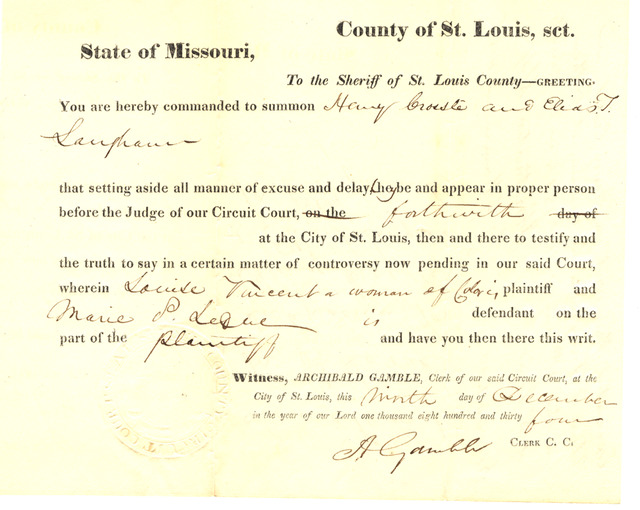 County of St. Louis, sct.
State of Missouri,
To the Sheriff of St. Louis County—GREETING.
You are hereby commanded to summon Henry and Elias T.
Langham
that setting aside all manner of excuse and delay, (he) be and appear in proper person
before the Judge of our Circuit Court, on the forthwith day of
at the City of St. Louis, then and there to testify and
the truth to say in a certain matter of controversy now pending in our said Court,
wherein Louise Vincent a woman of Color, plaintiff and
Marie P. Leduc is defendant on the
part of the plaintiff and have you then there this writ.
Witness, ARCHIBALD GAMBLE, Clerk of our said Circuit Court, at the
City of St. Louis, this day of December
in the year of our Lord one thousand eight hundred and thirty four
A Gamble CLERK C. C.